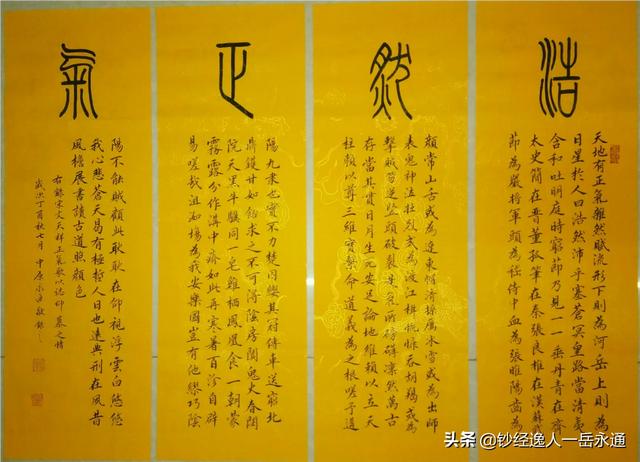 浩
天地有正氣雜然賦流形下則為河岳上則為
日星於人曰浩然沛乎塞蒼冥皇路當清夷
含和吐明庭時窮節乃見一一垂丹青在齊
太史簡在晉董狐筆在秦張良椎在漢蘇武
節為嚴將軍頭為嵇侍中血為張睢陽齒為
然
顏常山舌或為遼東帽清操厲冰雪或為出師
表鬼神泣壯烈或為渡江楫慷慨吞胡羯或為
擊賊笏逆豎頭破裂是氣所磅礴凜然萬古
存當其貫日月生死安足論地維賴以立天
柱賴以尊三綱實繫命道義為之根嗟予遘
正
陽九隸也實不力楚囚纓其冠傳車送窮北
鼎鑊甘如飴求之不可得陰房闃鬼火春閟
院天黑牛驥同一皂雞栖鳳凰食一朝蒙
霧露分作溝中瘠如此再寒暑百沴自辟
易嗟哉沮洳場為我安樂國豈有他繆巧陰
氣
陽不能賊顧此耿耿在仰視浮雲白悠悠
我心悲蒼天曷有極哲人日已遠典刑在夙昔
風檐展書讀古道照顏色
右錄宋文天祥正氣歌以誌仰慕之情
歲次丁酉秋七月中原永通敬錄
头条 @钞经逸人一岳永通